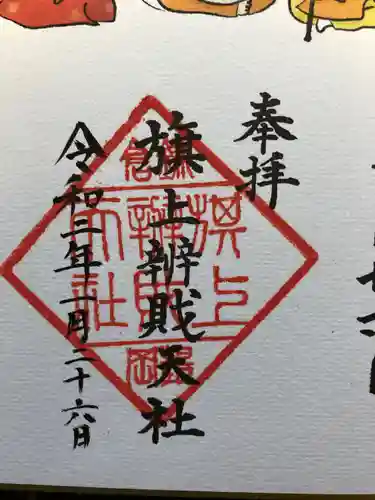 奉拝
旗上辨財天社
令和三年二月二十六日
鎌倉
旗上
辨財
天社